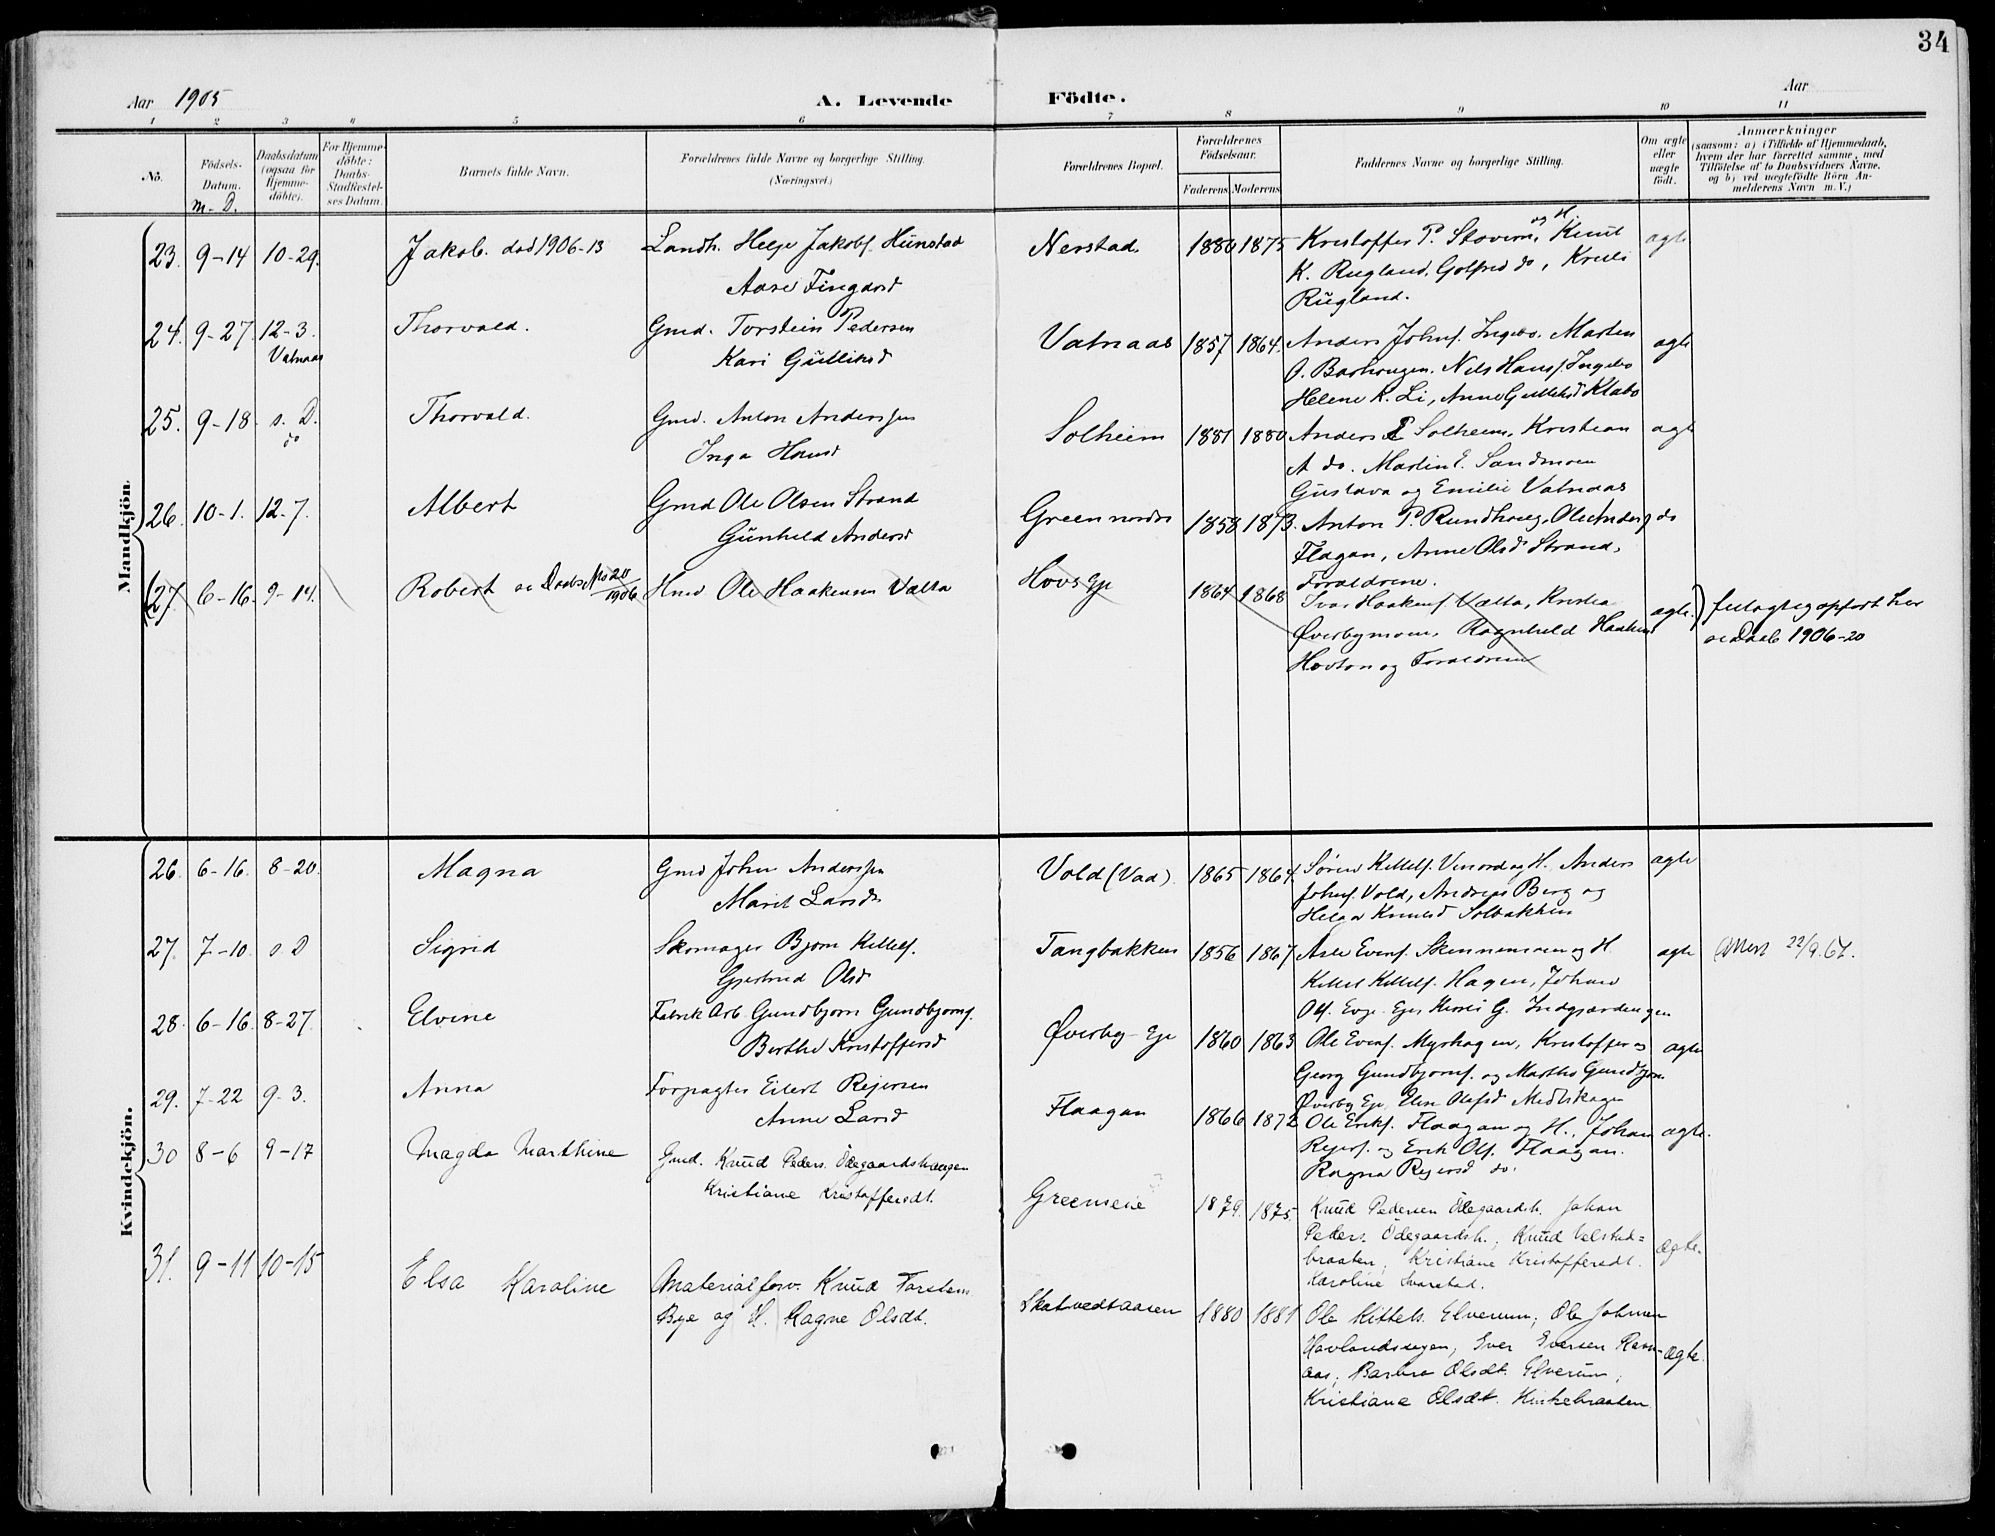 34
Aar 1905
A. Levende Födte.
Aar
1 2 3 4 5 6 7 8 9 10 11
No.
Födsels-Datum.
m. D.
Daabsdatum (ogsaa for Hjemme-döbte).
For Hjemme-döbte: Daabs-Stadfæstel-ses Datum.
Barnets fulde Navn.
Forældrenes fulde Navne og borgerlige Stilling.
(Næringsvei.)
Forældrenes Bopæl.
Forældrenes Födselsaar.
Faderens Moderens
Faddernes Navne og borgerlige Stilling.
Om ægte eller uægte födt.
Anmærkninger
(saasom: a) i Tilfælde af Hjemmedaab, hvem der har forrettet samme, med Tilföielse af to Daabsvidners Navne, og b) ved uægtefödte Börn An-melderens Navn m. V.)
Mandkjön.
23. 9-14 10-29. Jakob. død 1906-13 Landh. Helge Jakobs. Hunstad Nerstad. 1880 1875 Kristoffer P. Stavern og H. Knut ægte
Aase Fingarsd K. Rugland, Golfred do, Kristi
Rugland.
24. 9-27. 12-3. Thorvald. Gmd. Torstein Pedersen Vatnaas 1857 1864. Anders Johns. Ingebo. Martin ægte
Vatnaas Kari Gulliksd O. Barhaugen. Nils Hans. Ingebo
Helene K. Li, Anne Gulliksd Klabo
25. 9-18 s. D. Thorvald. Gmd. Anton Anderssen Solheim 1881 1880 Anders E Solheim, Kristian ægte
do Inga Hansd A do. Martin E. Sandmoen
Gustava og Emilie Vatnaas
26. 10-1. 12-7. Albert Gmd Ole Olsen Strand Green nordre 1858 1873. Anton P. Rundhaug, Ole Anders. do
Gunhild Andersd Flagan, Anne Olsd Strand,
Forældrene.
27. 6-16. 9-14. Robert se Daabs No 20/1906 Hmd Ole Haakensen Valta Hovs Eje 1864 1868 Ivar Haakens. Valta, Kristia ægte. feilagtig opført her
Øverbymoen, Ragnhild Haakens se Daab 1906-20
Hovson og Forældrene
Kvindekjön.
26. 6-16. 8-20. Magna Gmd John Anderssen Vold (Vad) 1865 1864. Søren Kittels. Vinord og H. Anders ægte
Marit Larsd Johns. Vold, Andreas Berg og
Helga Knutsd Solbakken
27. 7-10. s. D Sigrid Skomager Bjørn Kittels. Tangbakken 1856 1867 Asle Evens. Skinnemoen og H. ægte Attest 22/9.67.
Gjertrud Olsd Kittel Kittels. Hagen, Johan
Ols. Evje Eje, Kirsti G. Indgjærdengen
28. 6-16. 8-27. Elvine Fabrik Arb. Gundbjørn Gundbjørns. Øverby-Eje 1860 1863 Ole Evens. Myrhagen, Kristoffer og ægte
Berthe Kristoffersd Georg Gundbjørns. og Marthe Gundbjørn
Øverby Eje, Elise Olafsd Medlshagen
29. 7-22 9-3. Anna Forpagter Eilert Rejersen Flaagan 1866 1872 Ole Eriks. Flaagan og H., Johan ægte.
Anne Larsd Rejers. og Erik Ols. Flaagan.
Ragna Rejersd do.
30 8-6 9-17 Magda Marthine Gmd. Knud Peders. Ødegaardshaugen Greeneneie 1879. 1875. Knud Pedersen Ødegaardsh. Johan
Kristiane Kristoffersdt. Peders. Ødegaardsh., Knud Velstad- ægte.
braaten, Kristiane Kristoffersdt.
Karoline Svarstad.
31. 9-11 10-15 Elsa Karoline Materialforv. Knud Torstens. Skatvedtaasen 1880 1881 Ole Kittels. Elverum, Ole Johnsen
Bye og H. Ragne Olsdt. Havlandsegen, Iver Iversen Ravn- ægte.
aas, Barbro Olsdt. Elverum,
Kristiane Olsdt. Kirkebraaten